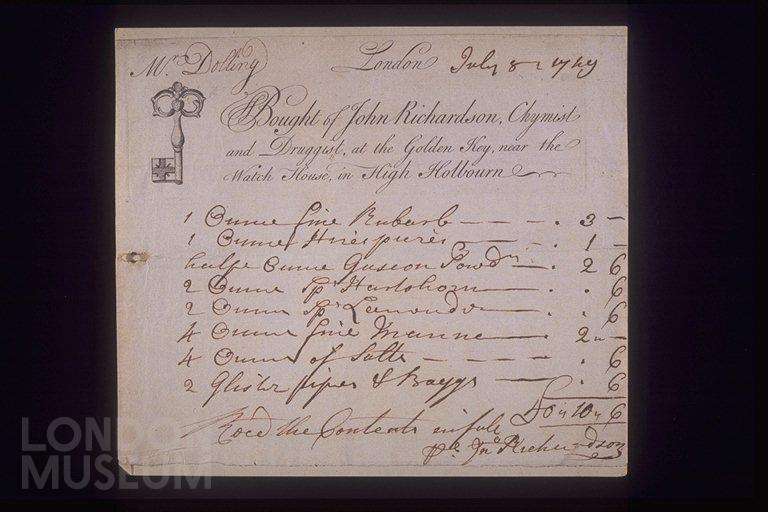 Mr. Dolling London July 8 1749
Bought of John Richardson, Chymist
and Druggist, at the Golden Key, near the
Watch House, in High Holbourn
1 Ounce fine Rubarb — — — . 3 —
1 Ounce — . 1 —
halfe Ounce Gascon Powdr — . 2 6
2 Ounce Spt Hartshorn — . . 6
2 Ounce Spt — . . 6
4 Ounce fine Manna — 2 " —
4 Ounce of Salts — — — — . 6
2 Glister pipes & Baggs — . 6
£0 " 10 " 6
Recd the Contents in full
pr Jno Richardson
LONDON
MUSEUM